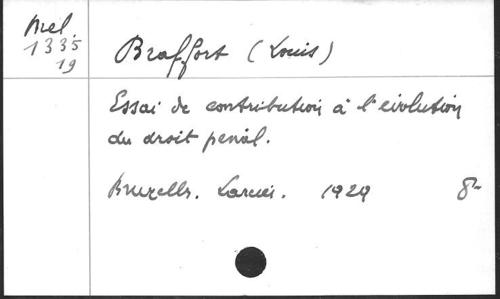 Mel.
1335
19
Braffort (Louis)
Essai de contribution à l'évolution
du droit pénal.
Bruxelles. Larcier. 1929 8-